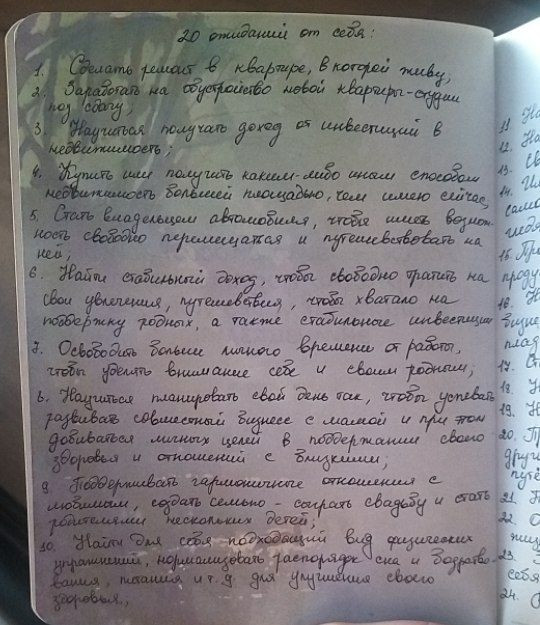 20 ожиданий от себя:
1. Сделать ремонт в квартире, в которой живу;
2. Заработать на обустройство новой квартиры-студии
под сдачу;
3. Научиться получать доход от инвестиций в
недвижимость;
4. Купить или получить каким-либо иным способом
недвижимость большей площадью, чем имею сейчас;
5. Стать владельцем автомобиля, чтобы иметь возмож-
ность свободно перемещаться и путешевствовать на
нем;
6. Найти стабильный доход, чтобы свободно тратить на
свои увлечения, путешевствия, чтобы хватало на
поддержку родных, а также стабильные инвестиции
7. Освободить больше личного времени от работы,
чтобы уделять внимание себе и своим родным;
8. Научиться планировать свой день так, чтобы успевать
развивать совместный бизнес с мамой и при этом
добиваться личных целей в поддержании своего
здоровья и отношений с близкими;
9. Поддерживать гармоничные отношения с
любимым, создать семью - сыграть свадьбу и стать
родителями нескольких детей;
10. Найти для себя подходящий вид физических
упражнений, нормализовать распорядок сна и бодрство-
вания, питания и т.д. для улучшения своего
здоровья.,
11
12.
13.
14.
15.
16.
17.
18.
19.
20.
21.
22.
23.
себя
24.